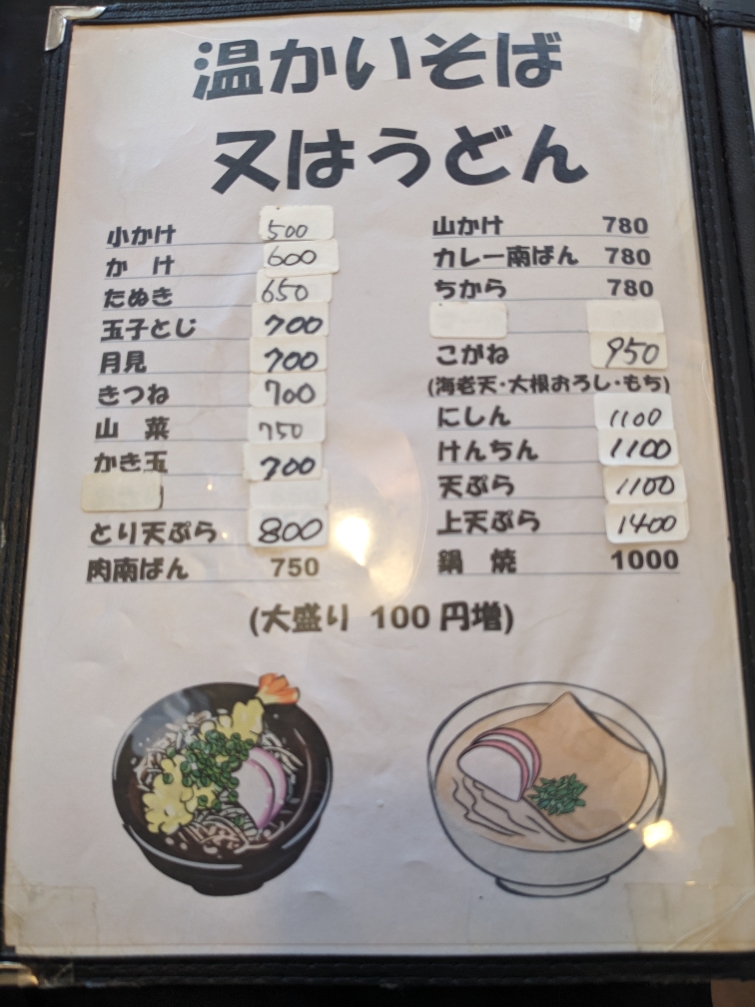 温かいそば
又はうどん
小かけ 500
かけ 600
たぬき 650
玉子とじ 700
月見 700
きつね 700
山菜 750
かき玉 700
とり天ぷら 800
肉南ばん 750
山かけ 780
カレー南ばん 780
ちから 780
こがね 950
(海老天・大根おろし・もち)
にしん 1100
けんちん 1100
天ぷら 1100
上天ぷら 1400
鍋焼 1000
(大盛り 100円増)